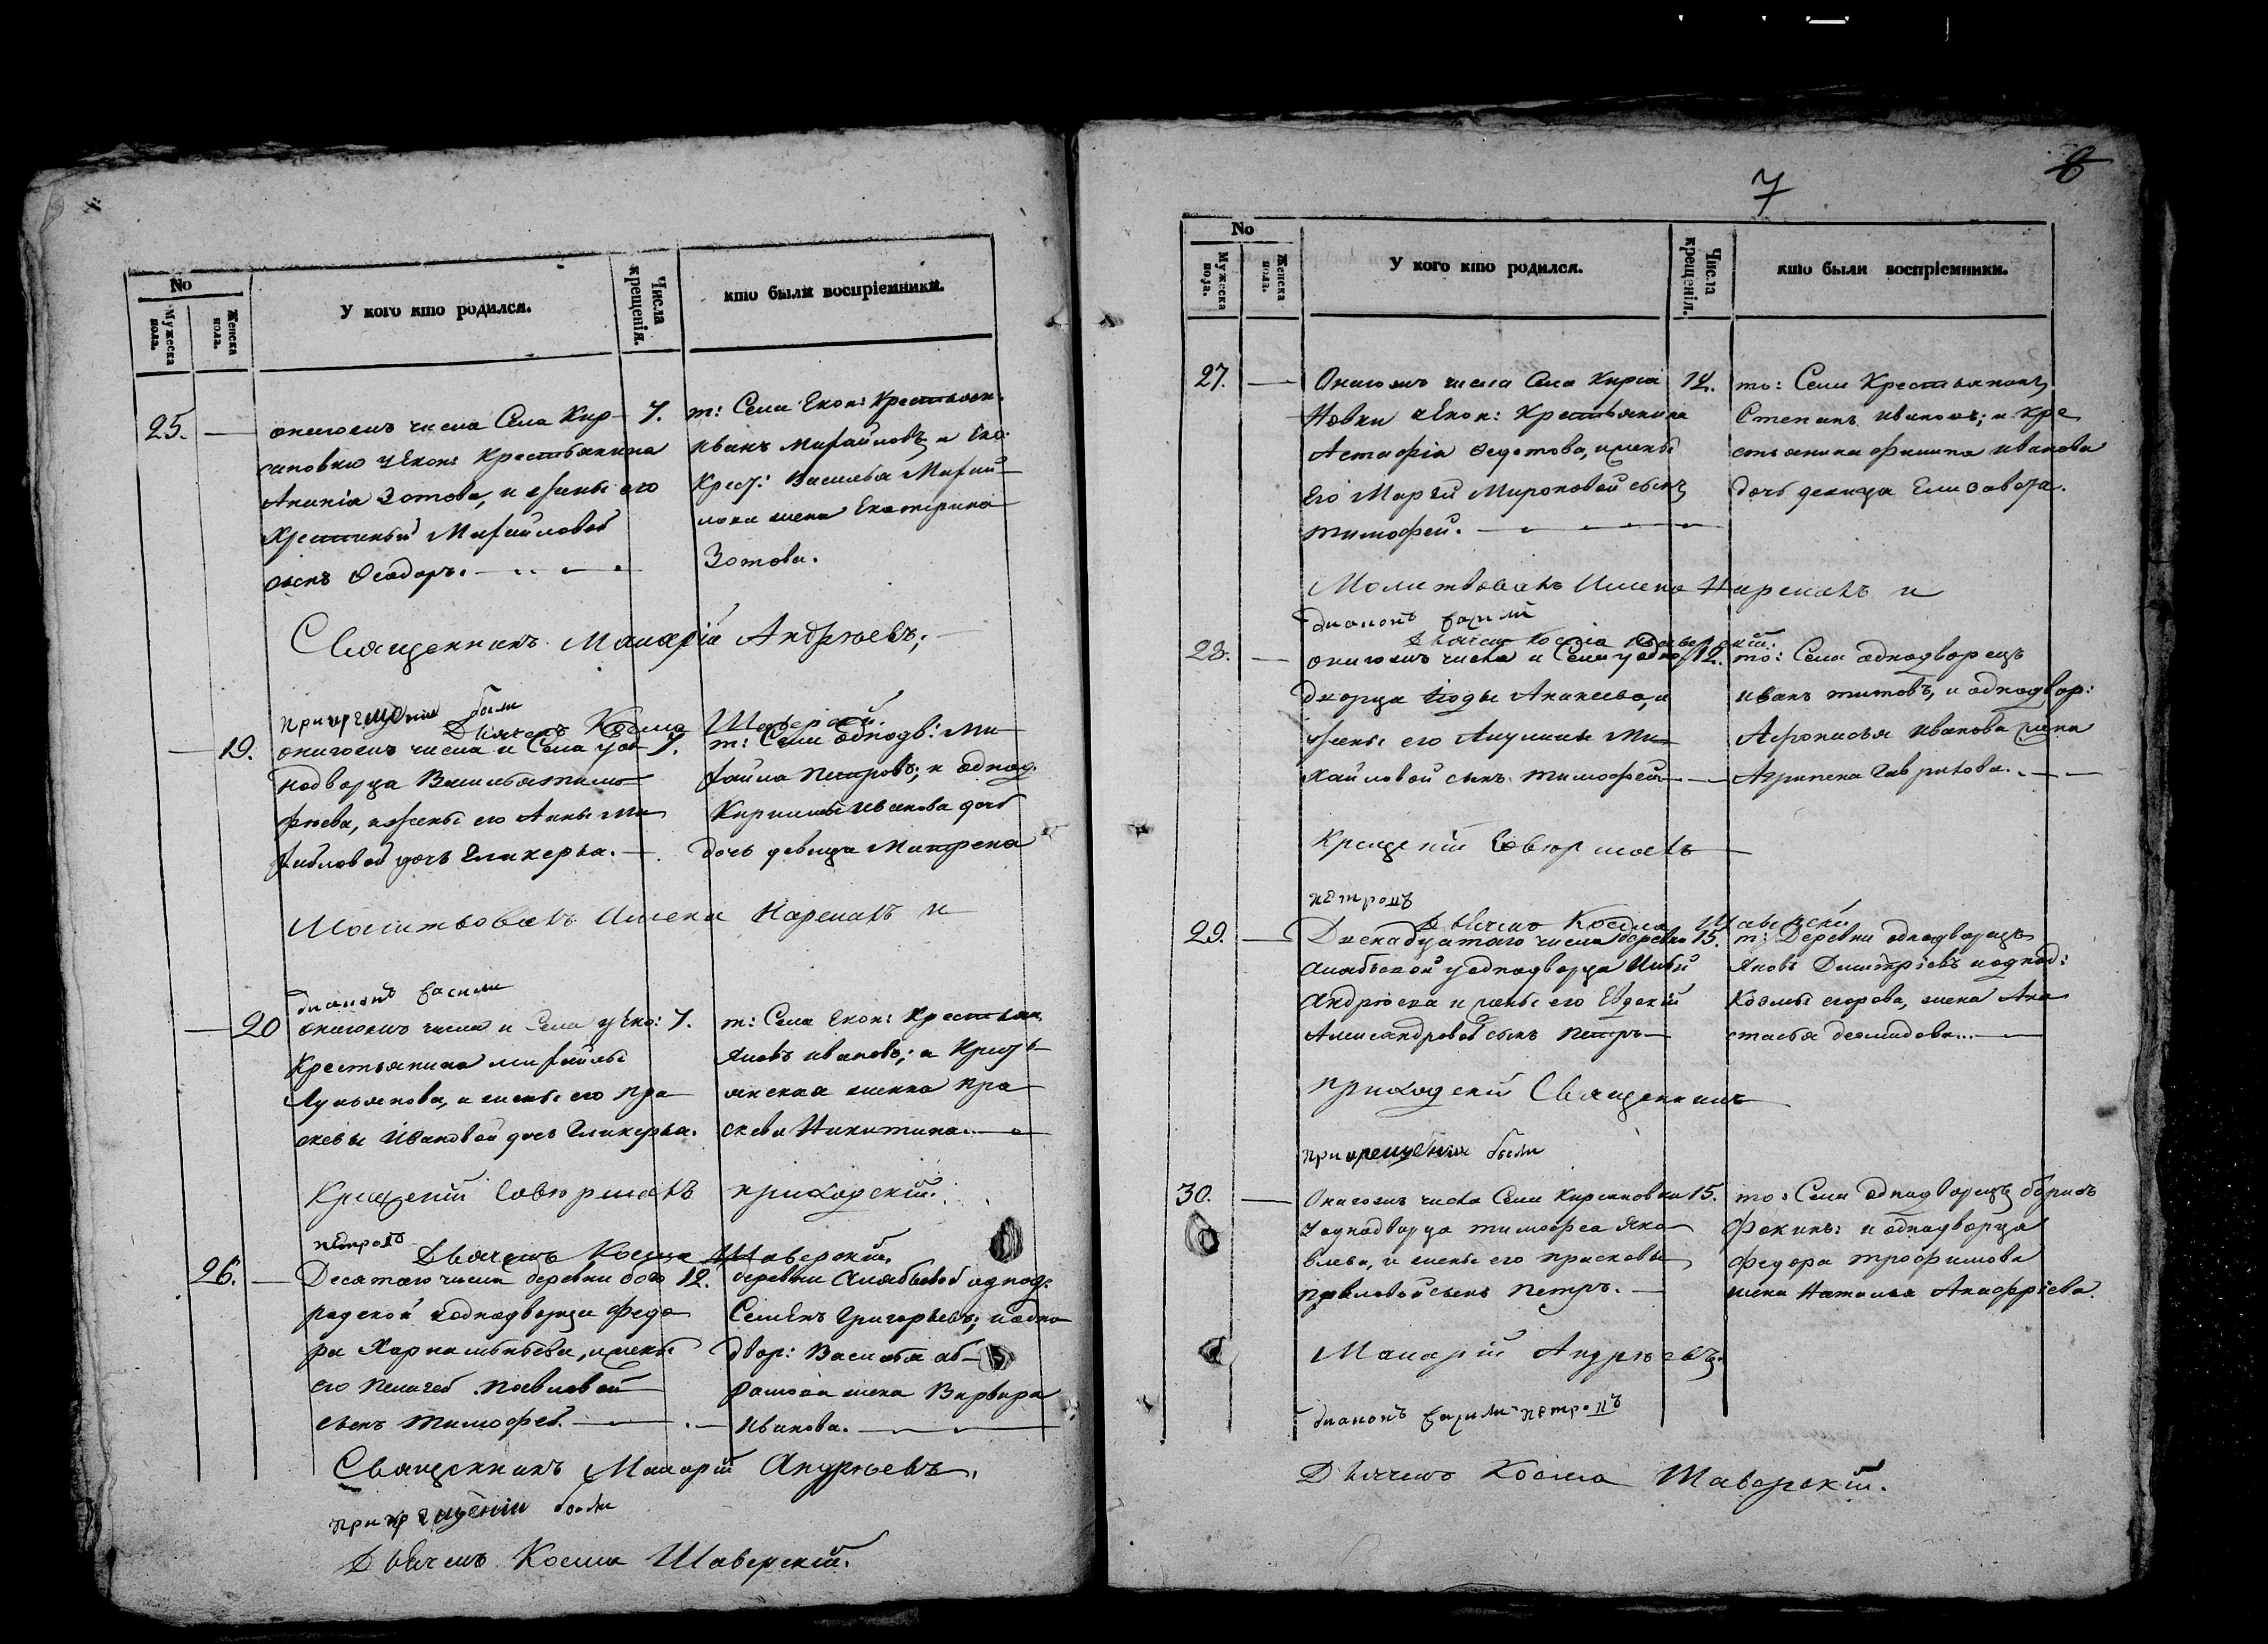 No
Мужеска пола.
Женска пола.
У кого кто родился.
Числа крещенія.
кто были воспріемники.
25. —
онагожъ числа Села Кир-
сановки уЭкон: Крестьянина
Ананіа Зотова, и жены его
Михайловой
сынъ Ѳеодоръ.
7.
т: Села Екон: Крестьян.
иванъ михайловъ и Эко:
Крест: Василья Михай-
лова жена Екатерина
Зотова.
Священникъ Макарій Андреевъ;
при крещении были
Дьячекъ Косма Шаверскій.
— 19.
онагожъ числа и Села уод-
нодворца Василья тимо-
феева, и жены его Анны ми
хайловой дочь Гликерья.
7.
т: Села однодв: Ми-
хайла Петровъ; и однод.
Кирилы иванова доч
дочь девица Матрена
Молитвовалъ Имена Нарекалъ и
диаконъ василй
— 20
онагожъ числа и Села уЭко:
Крестьянина михайлы
Лукьянова, и жены его Пра
сковьи Ивановой дочь Гликерья.
7.
т: Села Екон: Крестьян.
Яковъ ивановъ; и Крестья
янская женка Пра
сковья Никитина.
Крещеніи Совершалъ приходскій.
петровъ
Дьячекъ Косма Шаверскій.
26. —
Десятаго числа деревни бого
родской уоднодворца Федо
ра Харлампьева, и жены
его Пелагеи Павловой
сынъ тимофей.
12.
деревни Алабьевой однод:
Семенъ Григорьевъ; и одно
двор: Василья аб-
рамова жена Варвара
иванова.
Священникъ Макарій Андреевъ.
при крещеніи были
Дьячекъ Косма Шаверскій.
7
8
No
Мужеска пола.
Женска пола.
У кого кто родился.
Числа крещенія.
кто были воспріемники.
27. —
Онагожъ числа Села Кирса
новки уЭкон: Крестьянина
Астафіа Ѳедотова, и жены
Его Марьи Мироновой сынъ
тимофей.
12.
то: Села Крестьянинъ
Степанъ ивановъ; и Кре
стьянина филипа иванова
дочь девица Елизавета.
Молитвовалъ Имена Нарекалъ и
диаконъ василй
Дьячекъ Косма Шаверскій.
28. —
онагожъ числа и Села уодно
дворца Ананьева, и
жены его Акулины Ми
хайловой сынъ тимофей
12.
то: Села однодворецъ
иванъ титовъ, и однодвор:
Афонасья иванова жена
Агрипена Гаврилова.
Крещеніи Совершалъ
петровъ
Дьячекъ Косма Шаверскій
29. —
Двенадцатаго числа деревни
Алабьевой уоднодворца
Андреева и жены его Евдокіи
Александровой сынъ Петръ
15.
т: Деревни однодворецъ
Яковъ Димитріевъ и однод:
Козмы егорова, жена Ана
стасья демидова...
приходскій Священникъ
при крещении были
30. —
Онагожъ числа Села Кирсановки
Уоднодворца тимофеа Яко
влева, и жены его прасковьи
павловой сынъ Петръ.
15.
то: Села однодворецъ борисъ
Фокинъ: и однодворца
федора трофимова
жена Наталья Анофріева.
Макарій Андреевъ.
диаконъ василй петровъ
Дьячекъ Косма Шаверскій.